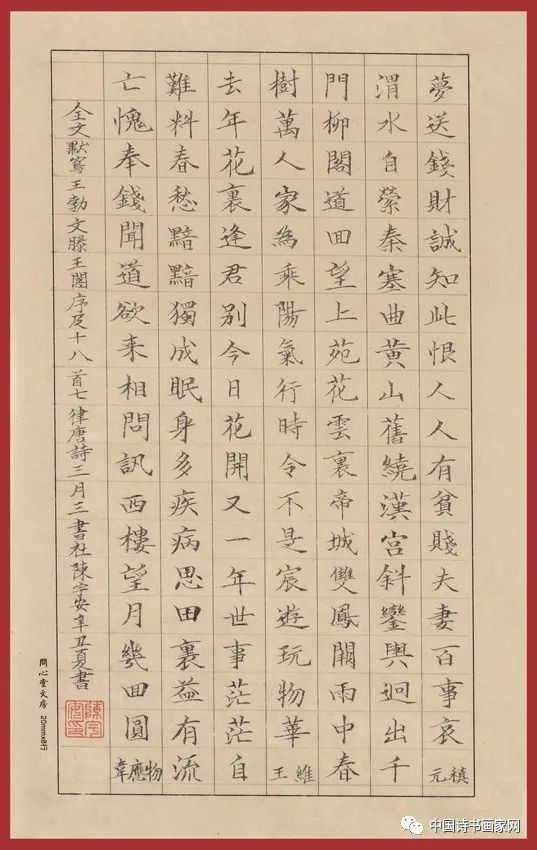 夢送錢財誠知此恨人人有貧賤夫妻百事哀 元稹
渭水自縈秦塞曲黃山舊繞漢宮斜鑾輿迥出千
門柳閣道回望上苑花雲裏帝城雙鳳闕雨中春
樹萬人家為乘陽氣行時令不是宸遊玩物華 王維
去年花裏逢君別今日花開又一年世事茫茫自
難料春愁黯黯獨成眠身多疾病思田裏益有流
亡愧奉錢聞道欲来相問訊西樓望月幾回圓 韋應物
全文默寫王勃文滕王閣序及十八首七律唐詩三月三書社陳宇安辛丑夏書
問心堂文房 20mm×8行
中国诗书画家网